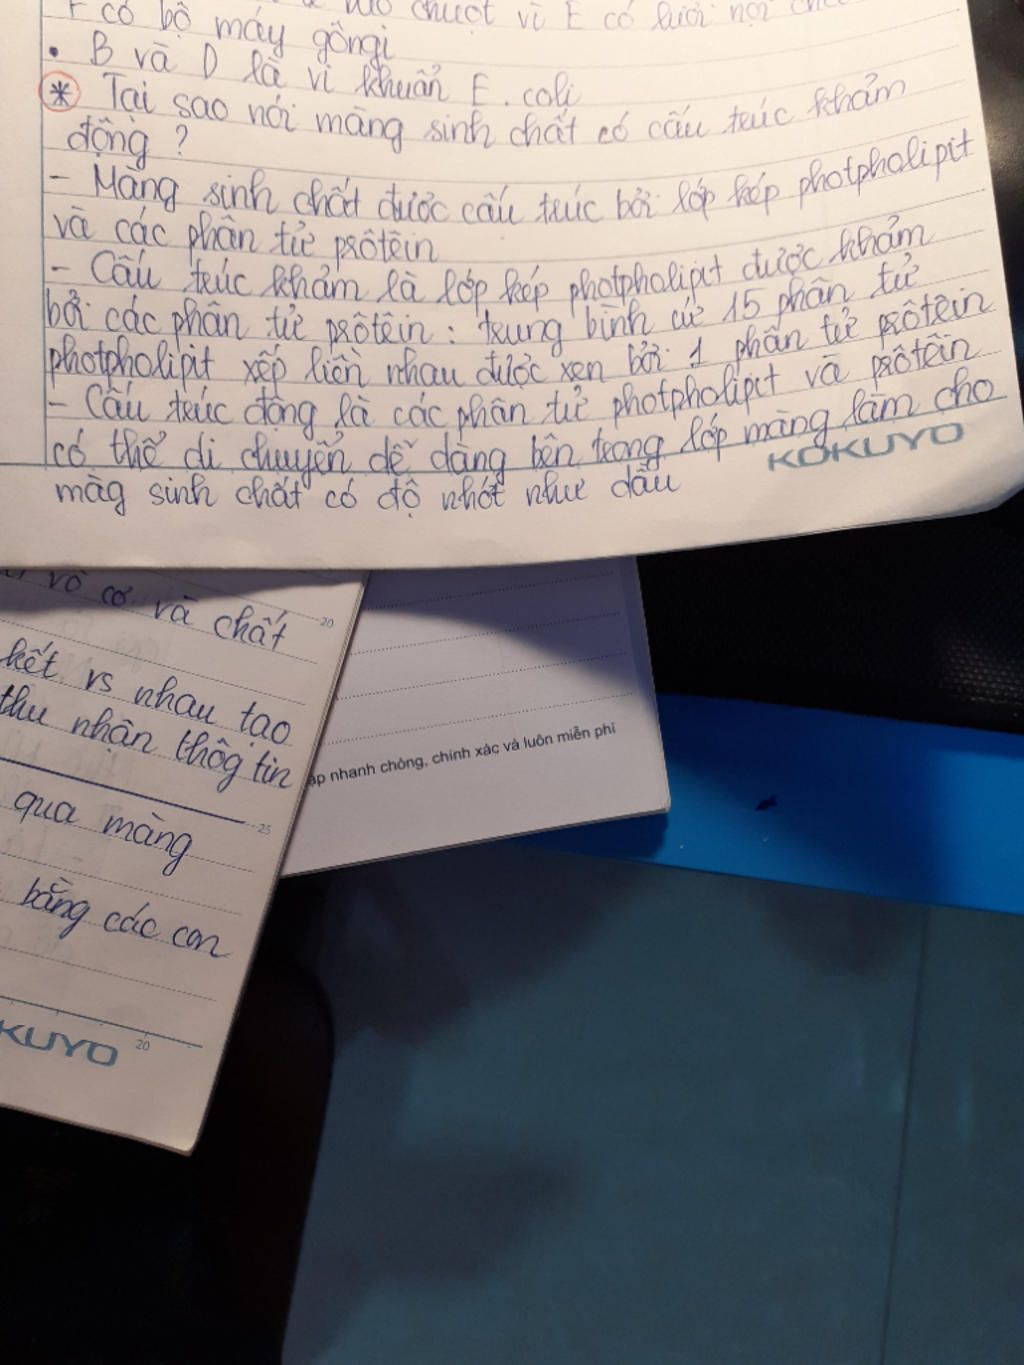 F có bộ máy gôngi
• B và D là vi khuẩn E.coli
* Tại sao nói màng sinh chất có cấu trúc khảm
động?
- Màng sinh chất được cấu trúc bởi lớp kép photpholipit
và các phân tử prôtêin
- Cấu trúc khảm là lớp kép photpholipit được khảm
bởi các phân tử prôtêin: trung bình cứ 15 phân tử
photpholipit xếp liền nhau được xen bởi 1 phân tử prôtêin
- Cấu trúc động là các phân tử photpholipit và prôtêin
có thể di chuyển dễ dàng bên trong lớp màng làm cho
màg sinh chất có độ nhớt như dầu
KOKUYO
vô cơ và chất
20
kết vs nhau tạo
thu nhận thôg tin
25
qua màng
bằng các con
20
KUYO
ập nhanh chóng, chính xác và luôn miễn phí